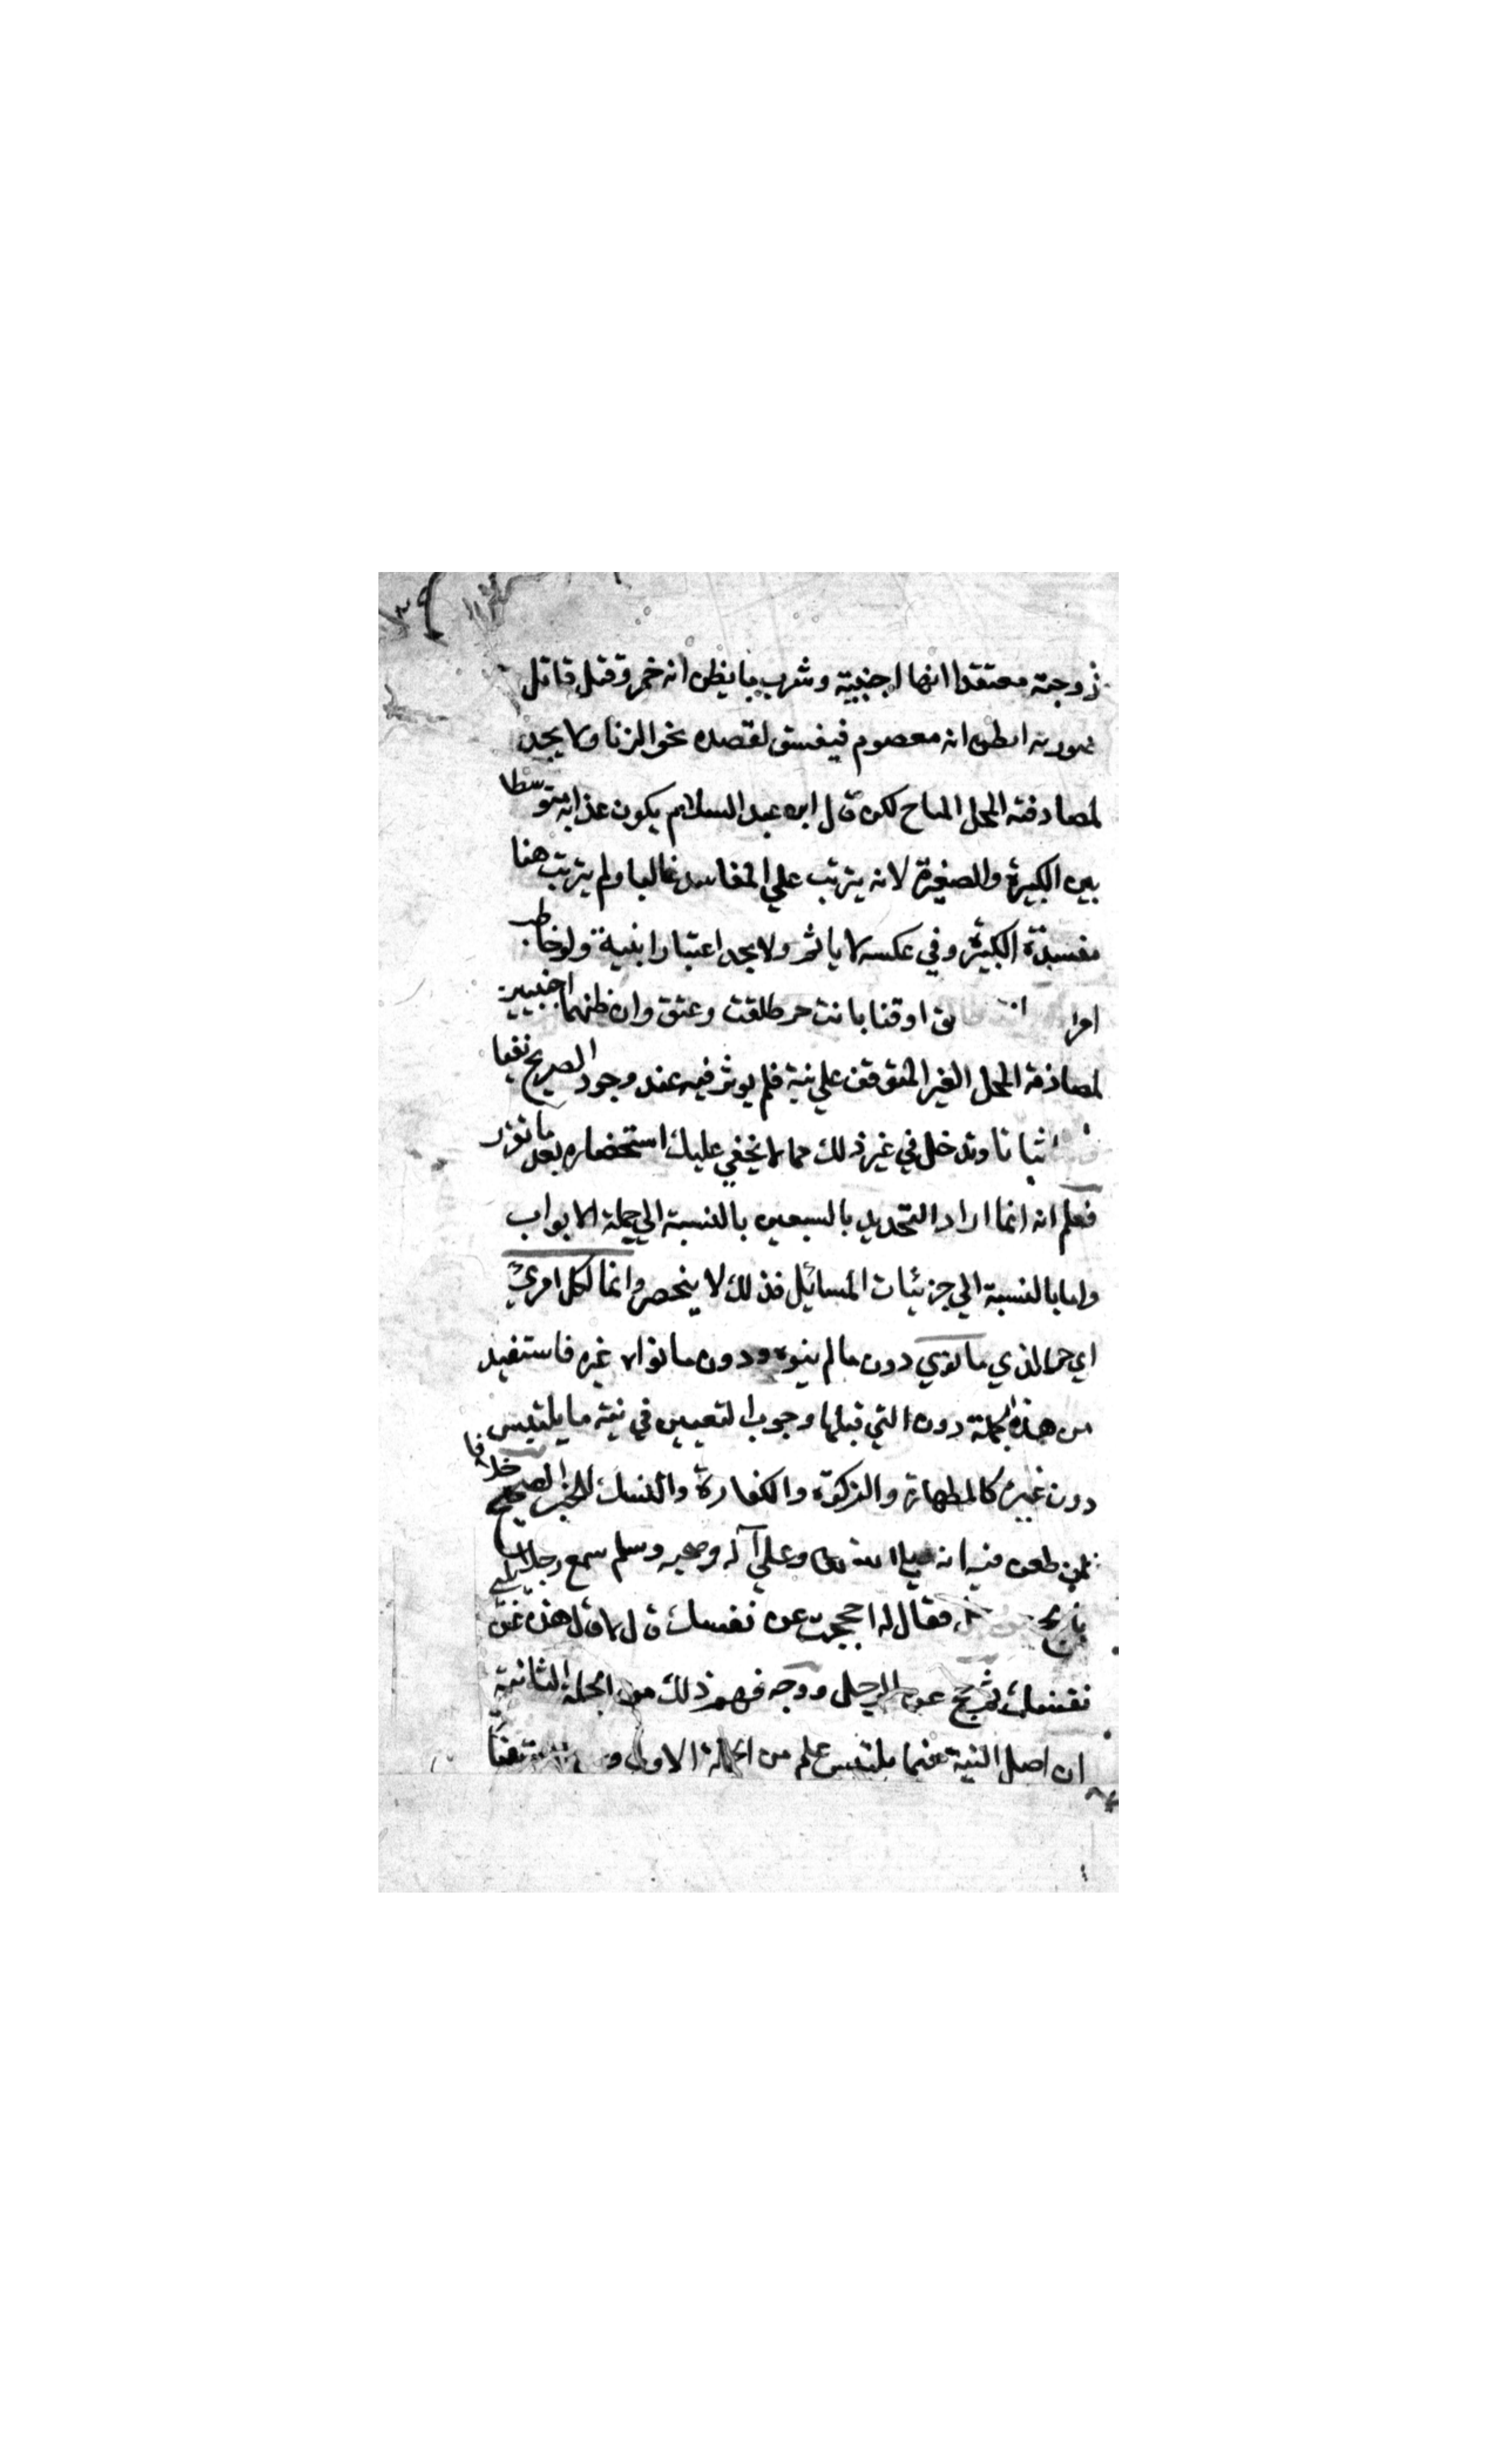 زوجته معتقدا انها اجنبية وشرب ما يظن انه خمر وقتل قاتل
مورثه انه معصوم فيفسق لقصده نحو الزنا ولا يحد
لمصادفته المحل المباح لكن قال ابن عبد السلام يكون عذابه متوسطا
بين الكبيرة والصغيرة لانه يترتب على المفاسد غالبا ولم يترتب هنا
مفسدة الكبيرة وفي عكسه لا ياثم ولا يحد اعتبارا بنيته ولو خاطب
اوقنا بانت حر طلقت وعتق وان ظنهما اجنبيين
لمصادفة المحل الغير المتوقف على نية فلم يوثر فيه عند وجود الصريح نفيا
وتدخل في غير ذلك مما لا يخفي عليك استحضاره بعد ما تقرر
فعلم انه انما اراد التحديد بالسبعين بالنسبة الي جملة الابواب
واما بالنسبة الي جزئيات المسائيل فذلك لا ينحصر وانما لكل امرئ
اي جزا الذي ما نوي دون ما لم ينوه ودون ما نواه غيره فاستفيد
من هذه الجملة دون التي قبلها وجوب التعيين في نية ما يلتبس
دون غيره كالطهارة والزكوة والكفارة والنسك للخبر الصحيح خلافا
لمن طعن فيه انه صلى الله وعلي آله وصحبه وسلم سمع رجلا يلبي
فقال له احججت عن نفسك قال لا قال هذه عن
نفسك ثم حج عن الرجل ووجه فهم ذلك من الجملة الثانية
ان اصل النية فيما يلتبس علم من الجملة الاولى